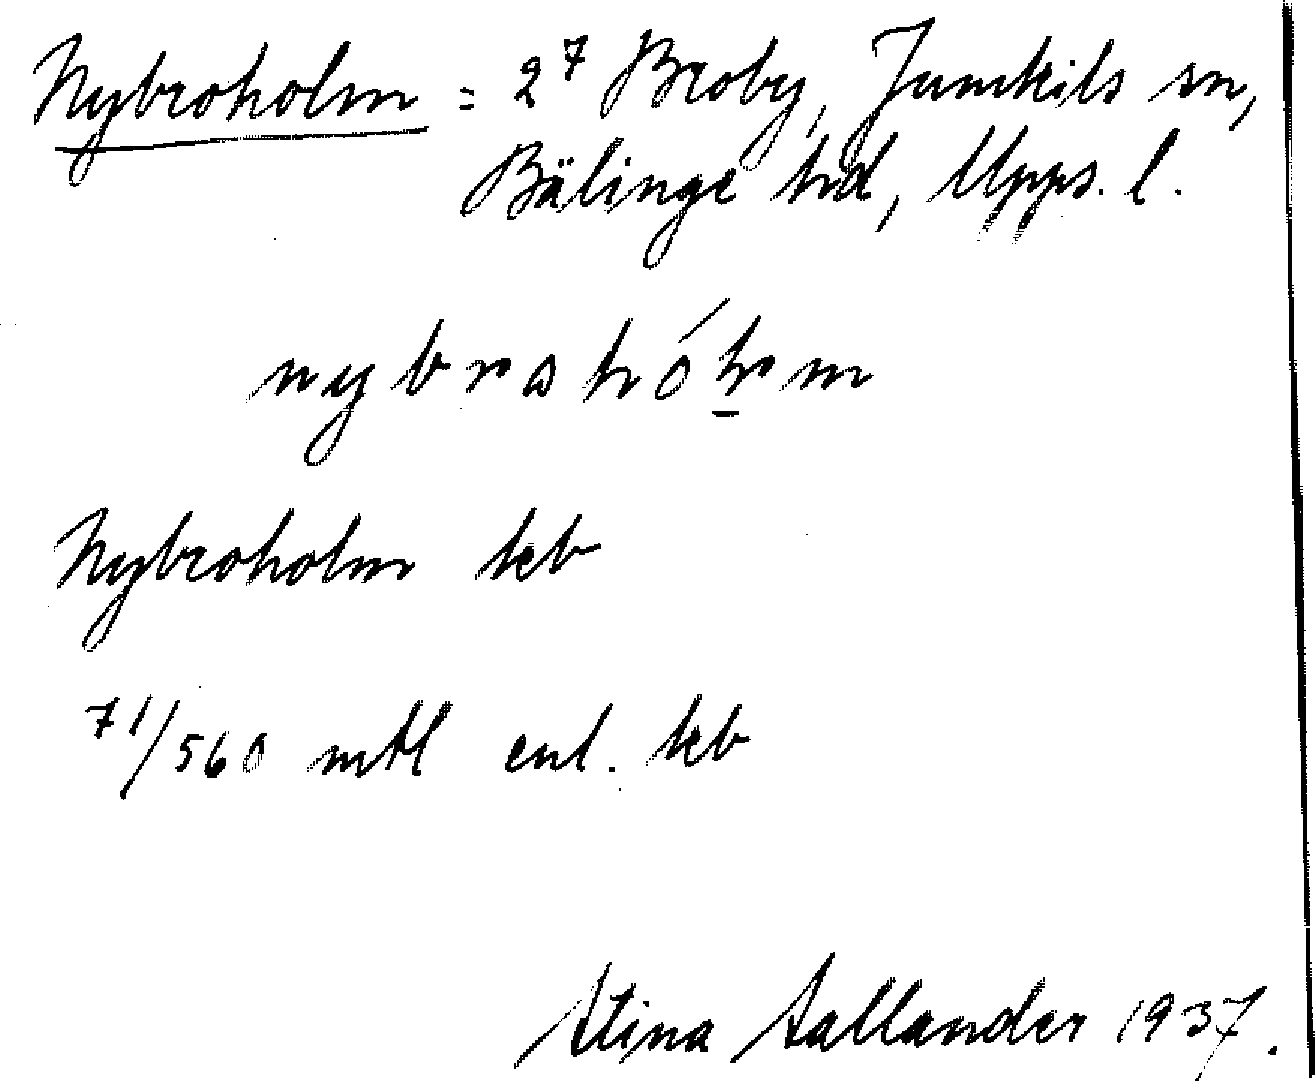 Nybroholm = 2⁷ Broby, Jumkils sn,
Bälinge hd, Upps. l.
nybrohólm
Nybroholm keb
71/560 mtl enl. keb
Stina Sallander 1937.